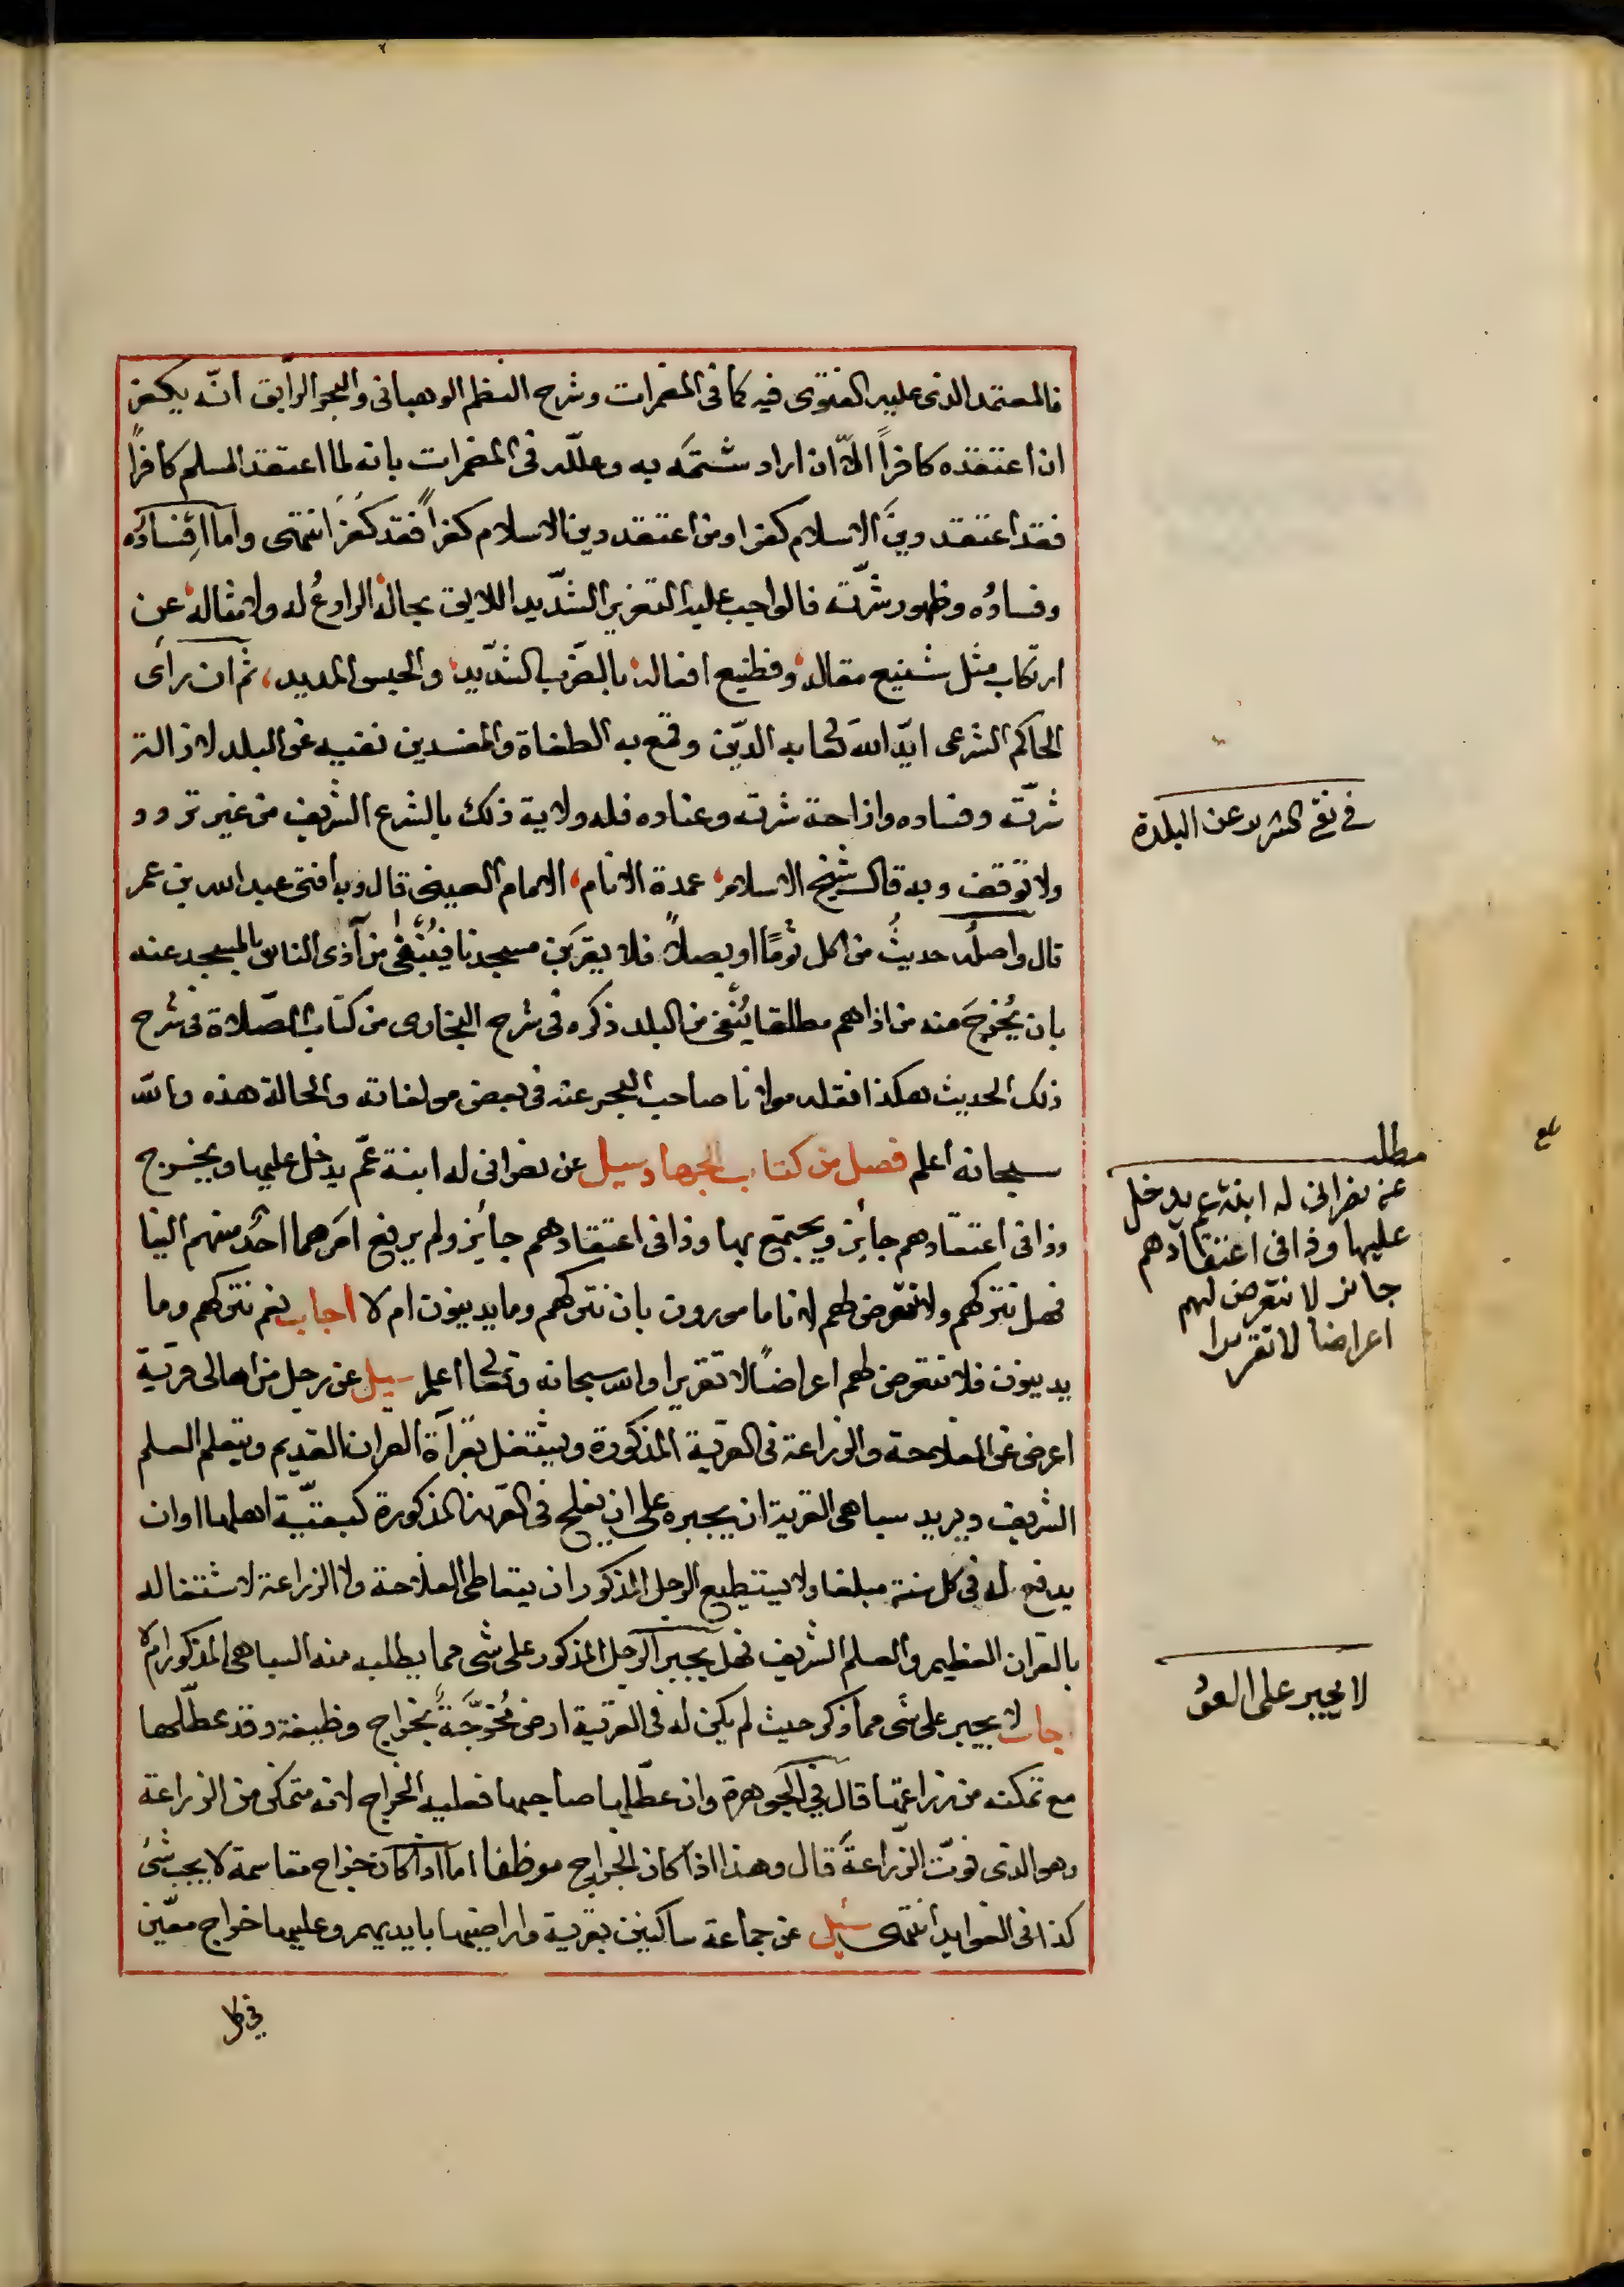 فالمعتمد الذى عليه الفتوى فيه كما فى المضمرات وشرح النظم الوهبانى والبحر الرايق انّه يكفر
ان اعتقده كافراً الّا ان اراد شتمَه به وعلّله فى المضمرات بانه لما اعتقد المسلم كافراً
فقد اعتقد دينَ الاسلام كفرا ومن اعتقد دين الاسلام كفراً فقد كَفَرَ انتهى واما اِفسادُه
وفسادُه وظهور شرّه فالواجب عليه التعزير الشّديد اللايق بحاله الرادعُ له ولامثاله عن
ارتكاب مثل شنيع مقاله وفظيع افعاله بالضّرب الشّديد والحبس المديد، ثم ان رآى
الحاكم الشرعى ايّد الله تعالى به الدّين وقمع به الطغاة والمفسدين نفيه عن البلد لازالة
شرّه وفساده وازاحة شره وعناده فله ولاية ذلك بالشرع الشريف من غير تردد
ولا توقف وبه قال شيخ الاسلام عمدة الانام، الامام العينى قال وبه افتى عبد الله بن عمر
قال واصلُه حديثُ من اكل ثومًا او بصلاً فلا يقربَن مسجدنا فيُنْفى من آذى الناس بالمسجد عنه
بان يُخرَجَ منه من اذاهم مطلقا يُنْفى من البلد ذكره فى شرح البخارى من كتاب الصّلاة فى شرح
ذلك الحديث هكذا نقله مولانا صاحب البحر عنه فى بعض مولفاته والحالة هذه والله
سبحانه اعلم فصل من كتاب الجهاد سيل عن نصرانى له ابنة عمّ يدخل عليها ويخرج
وذا فى اعتقادهم جائز ويجتمع بها وذا فى اعتقادهم جائز ولم يرفع امرهما احدُ منهم الينا
فهل نتركهم ولا نتعرض لهم لاننا مامورون بان نتركهم وما يدينون ام لا اجاب نعم نتركهم وما
يدينون فلا نتعرض لهم اعراضًا لا تقريرا والله سبحانه وتعالى اعلم سيل عن رجل من اهالى قرية
اعرض عن الفلاحة والزراعة فى القرية المذكورة ويشتغل بقرآة القران القديم ويتعلم العلم
الشريف ويريد سباهى القرية ان يجبره على ان يفلح فى القرية المذكورة كبقيّة اهلها او ان
يدفع له فى كل سنة مبلغا ولا يستطيع الرجل المذكور ان يتعاطى الفلاحة ولا الزراعة لاشتغاله
بالقران العظيم والعلم الشريف فهل يجبر الرجل المذكور على شى مما يطلبه منه السباهى المذكور ام لا
اجاب لا يجبر على شى مما ذكر حيث لم يكن له فى القرية ارض مُخرَّجَةً بخراج وظيفة وقد عطّلها
مع تمكنه من زراعتها قال فى الجوهرة وان عطّلها صاحبها فعليه الخراج لانه متمكن من الزراعة
وهو الذى فوّت الزّراعةَ قال وهذا اذا كان الخراج موظفا اما اذا كان خراج مقاسمة لا يجب شئ
كذا فى الفوايد انتهى سُئِل عن جماعة ساكنين بقرية واراضيها بايديهم وعليها خراج معيّن
فى كل
فى نفى الشرير عن البلدة
مطلب
عن نصرانى له ابنة عم يدخل
عليها وذا فى اعتقادهم
جائز لا نتعرض لهم
اعراضا لا تقريرا
لا يجبر على العود